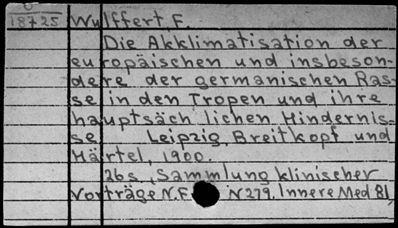 18725 Wulffert F.
Die Akklimatisation der
europäischen und insbeson-
dere der germanischen Ras-
se in den Tropen und ihre
hauptsächlichen Hindernis-
se. Leipzig, Breitkopf und
Härtel, 1900.
26s. Sammlung klinischer
Vorträge N.F. N279. Innere Med 81